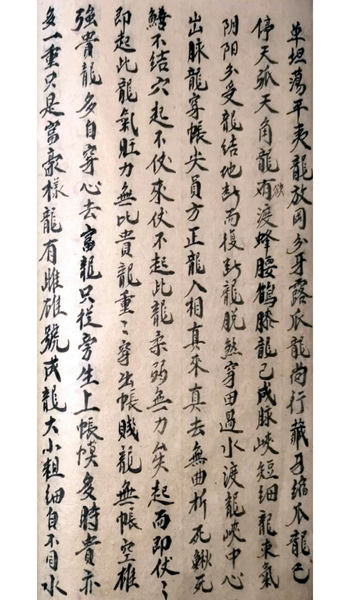 单坦蕩平夷龍放岡分牙露爪龍尚行藏牙縮爪龍已
停天弧天角龍欲渡蜂腰鶴膝龍已成脉峽短細龍束氣
阴阳分受龍结地断而復断龍脱煞穿田過水渡龍峽中心
出脉龍穿帳尖員方正龍入相真來真去無曲折死鰍死
鱔不结穴起不伏來伏不起此龍柔弱無力矣起而即伏〻
即起此龍氣旺力無比貴龍重〻穿出帳賤龍無帳空雄
強貴龍多自穿心去富龍只從旁生上帳慔多時貴亦
多一重只是富豪樣龍有雌雄號茂龍大小粗細自不同水